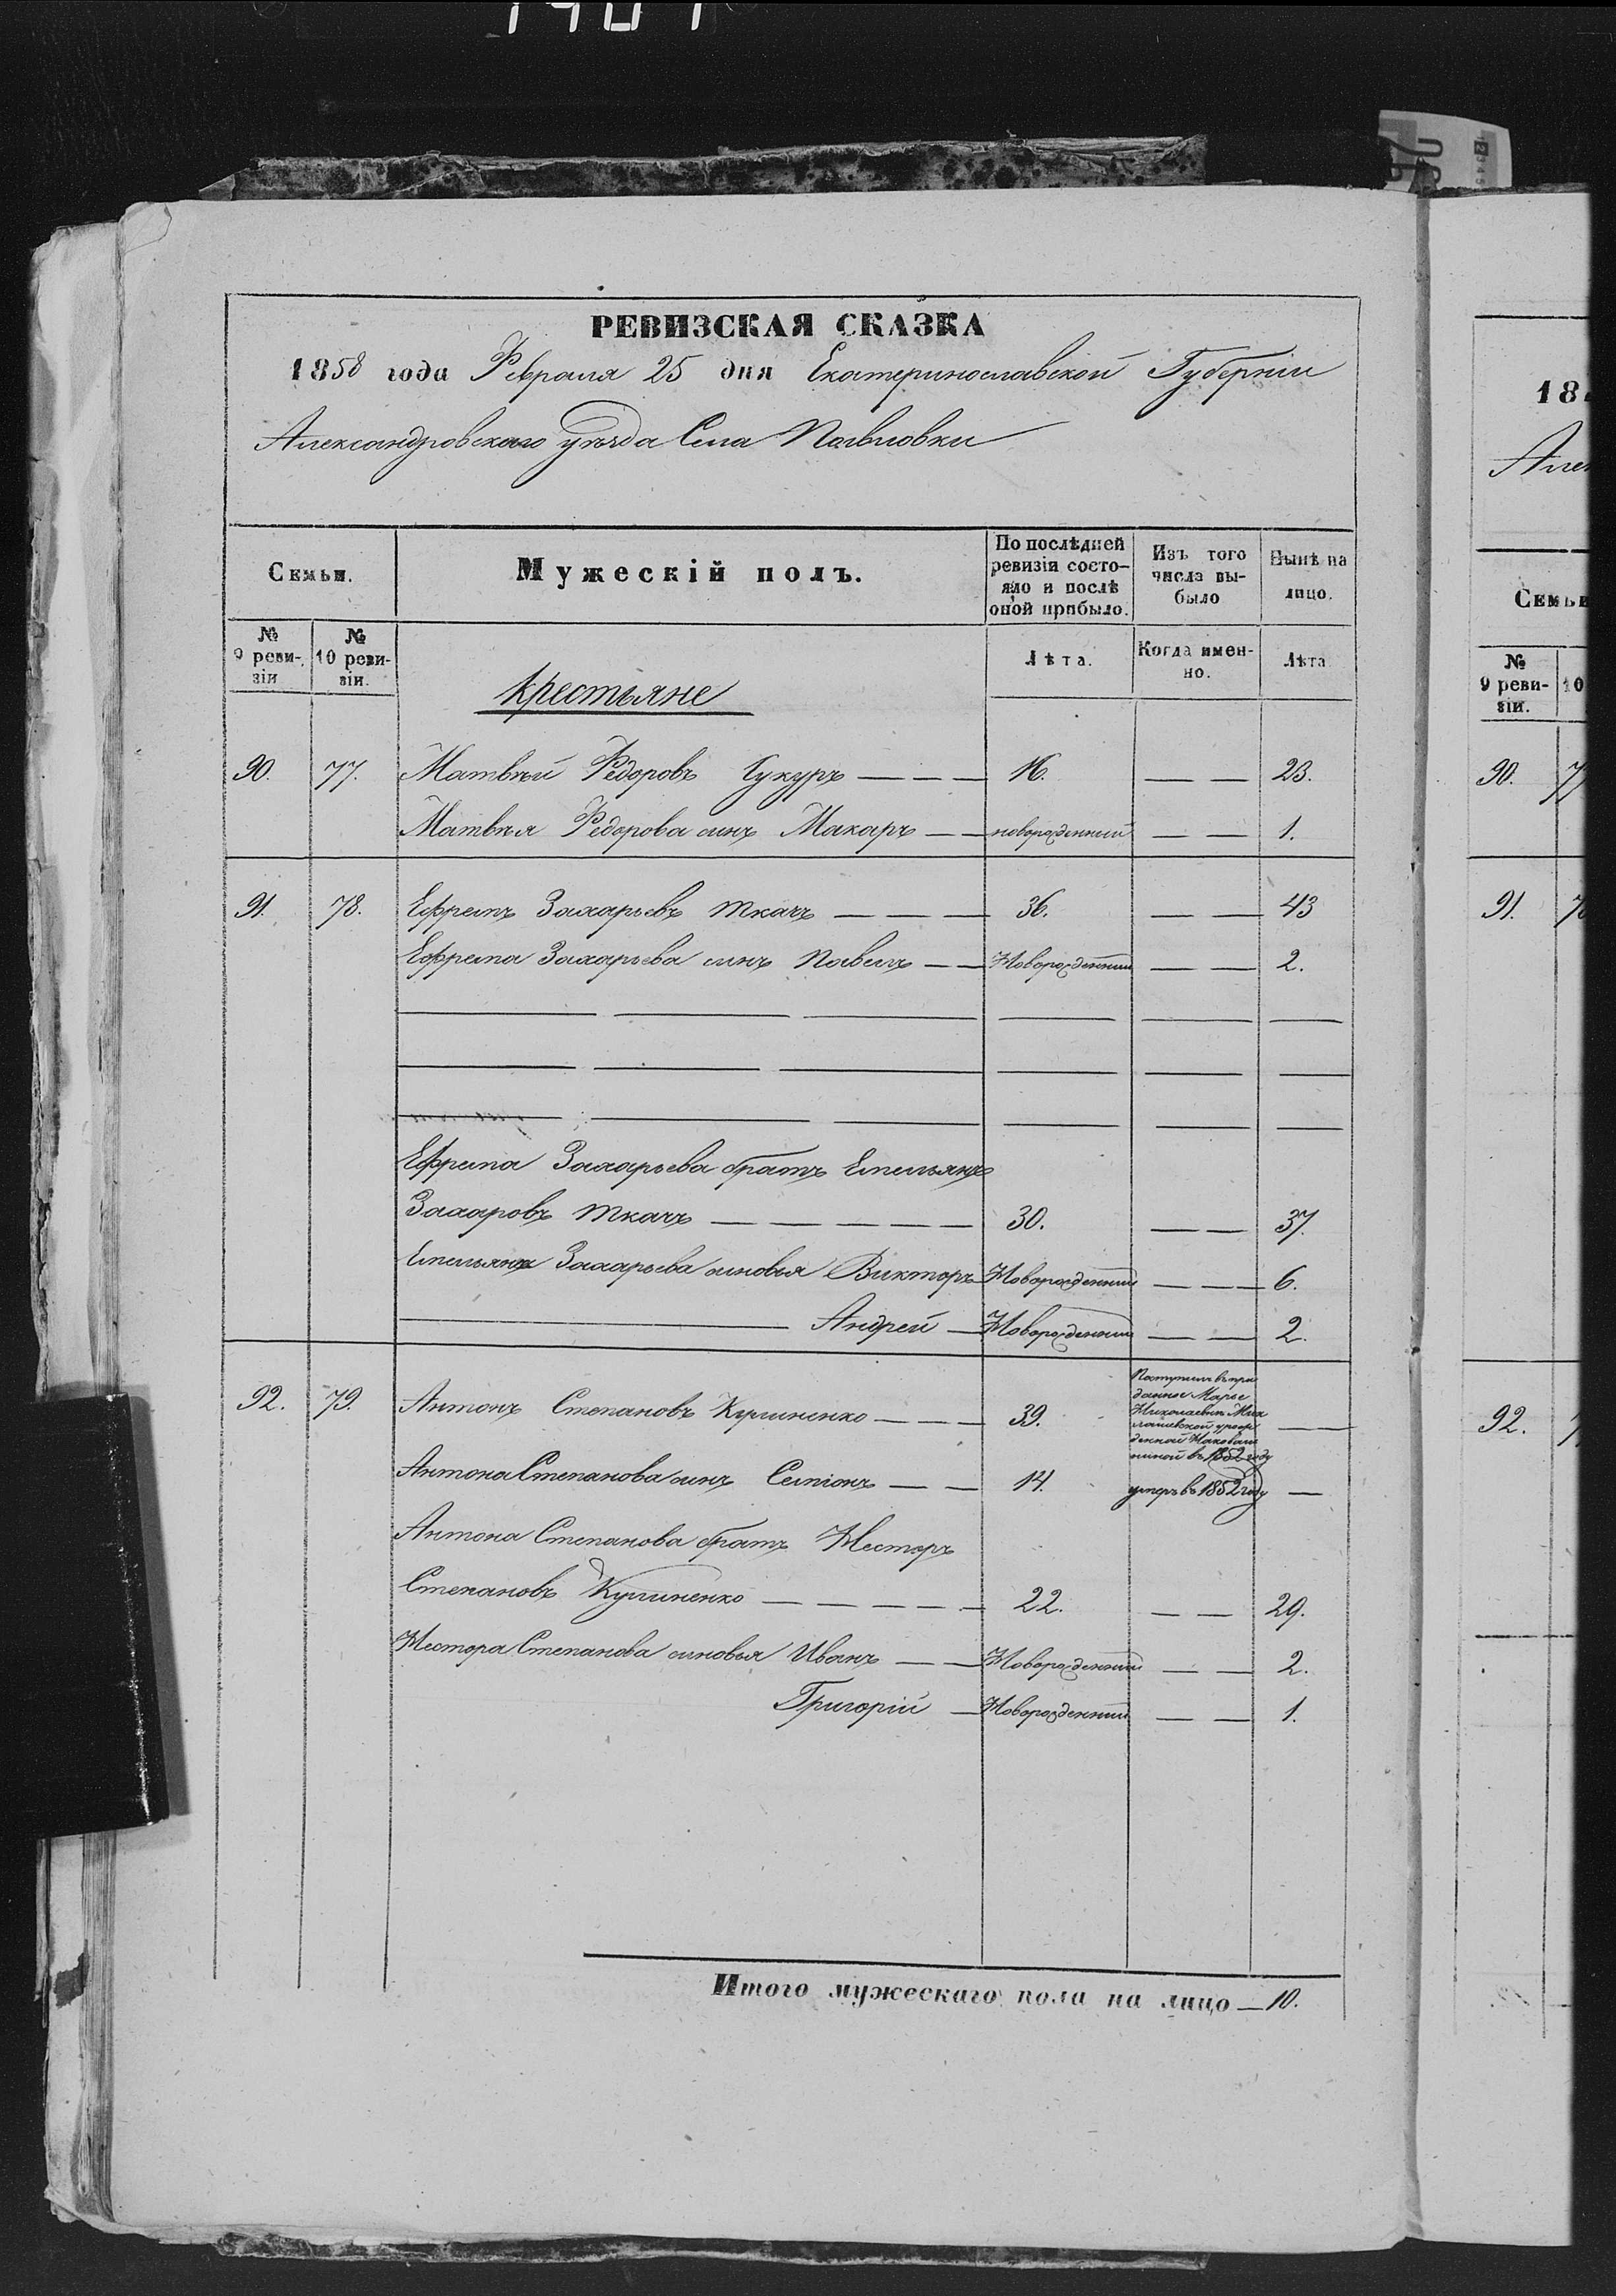 РЕВИЗСКАЯ СКАЗКА
1858 года Февраля 25 дня Екатеринославской Губерніи
Александровскаго уѣзда Села Павловки
Семьи. Мужескій полъ. По послѣдней ревизіи состояло и послѣ оной прибыло. Изъ того числа выбыло Нынѣ на лицо.
№ 9 ревизіи № 10 ревизіи. Лѣта. Когда именно. Лѣта
Крестьяне
90. 77. Матвѣй Федоровъ Цукуръ — — — 16. — — 23.
Матвѣя Федорова сынъ Макаръ — — новорожденный — — 1.
91. 78. Ефремъ Захарьевъ Ткачъ — — — 36. — — 43
Ефрема Захарьева сынъ Павелъ — — Новорожденный — — 2.
Ефрема Захарьева братъ Емельянъ
Захаровъ Ткачъ — — — — — 30. — — 37.
Емельяна Захарьева сыновья Викторъ Новорожденный — — 6.
Андрей — Новорожденный — — 2.
92. 79. Антонъ Степановъ Кулиненко — — — 39. Поступилъ въ при
данное Марье
Николаевнѣ Мик
лашевской урож
денной
въ 1852 году —
Антона Степанова сынъ Семіонъ — — 14. умеръ въ 1852 году —
Антона Степанова братъ Несторъ
Степановъ Кулиненко — — — — — 22. — — 29.
Нестора Степанова сыновья Иванъ — — Новорожденный — — 2.
Григорій — Новорожденный — — 1.
Итого мужескаго пола на лицо — 10.
18
Але
Семьи
№ 9 ревизіи. 10
90. 77
91. 78
92.